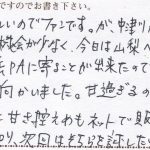 ですのでお書き下さい。
しいのでファンです。が、中津川
機会が少なく、今日は山梨へ
PAに寄ることが出来たので
向かいました。甘過ぎるの
に甘さ控えめもネットで見
り、次回はそちらを試したい